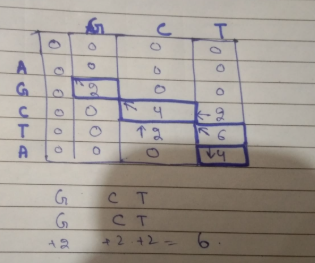 G C T
0 0 0 0
A 0 0 0 0
G 0 ↖2 0 0
C 0 0 ↖4 ↖2
T 0 0 ↑2 ↖6
A 0 0 0 ↓4
G C T
G C T
+2 +2 +2 = 6.